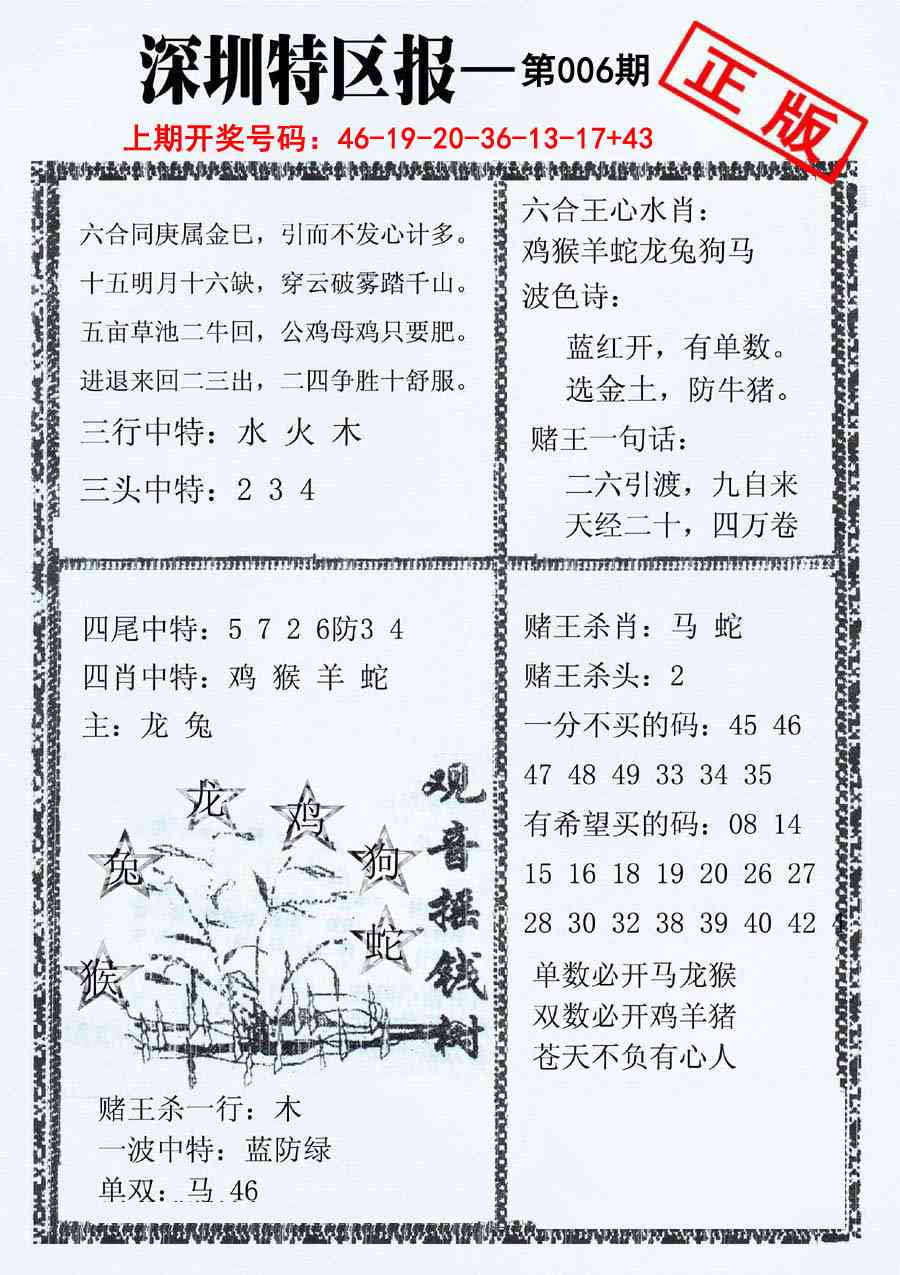 深圳特区报—第006期
正版
上期开奖号码：46-19-20-36-13-17+43
六合同庚属金巳，引而不发心计多。
十五明月十六缺，穿云破雾踏千山。
五亩草池二牛回，公鸡母鸡只要肥。
进退来回二三出，二四争胜十舒服。
三行中特：水 火 木
三头中特：2 3 4
六合王心水肖：
鸡猴羊蛇龙兔狗马
波色诗：
蓝红开，有单数。
选金土，防牛猪。
赌王一句话：
二六引渡，九自来
天经二十，四万卷
四尾中特：5 7 2 6防3 4
四肖中特：鸡 猴 羊 蛇
主：龙 兔
龙
鸡
兔
狗
蛇
猴
观音摇钱树
赌王杀一行：木
一波中特：蓝防绿
单双：马 46
赌王杀肖：马 蛇
赌王杀头：2
一分不买的码：45 46
47 48 49 33 34 35
有希望买的码：08 14
15 16 18 19 20 26 27
28 30 32 38 39 40 42
单数必开马龙猴
双数必开鸡羊猪
苍天不负有心人